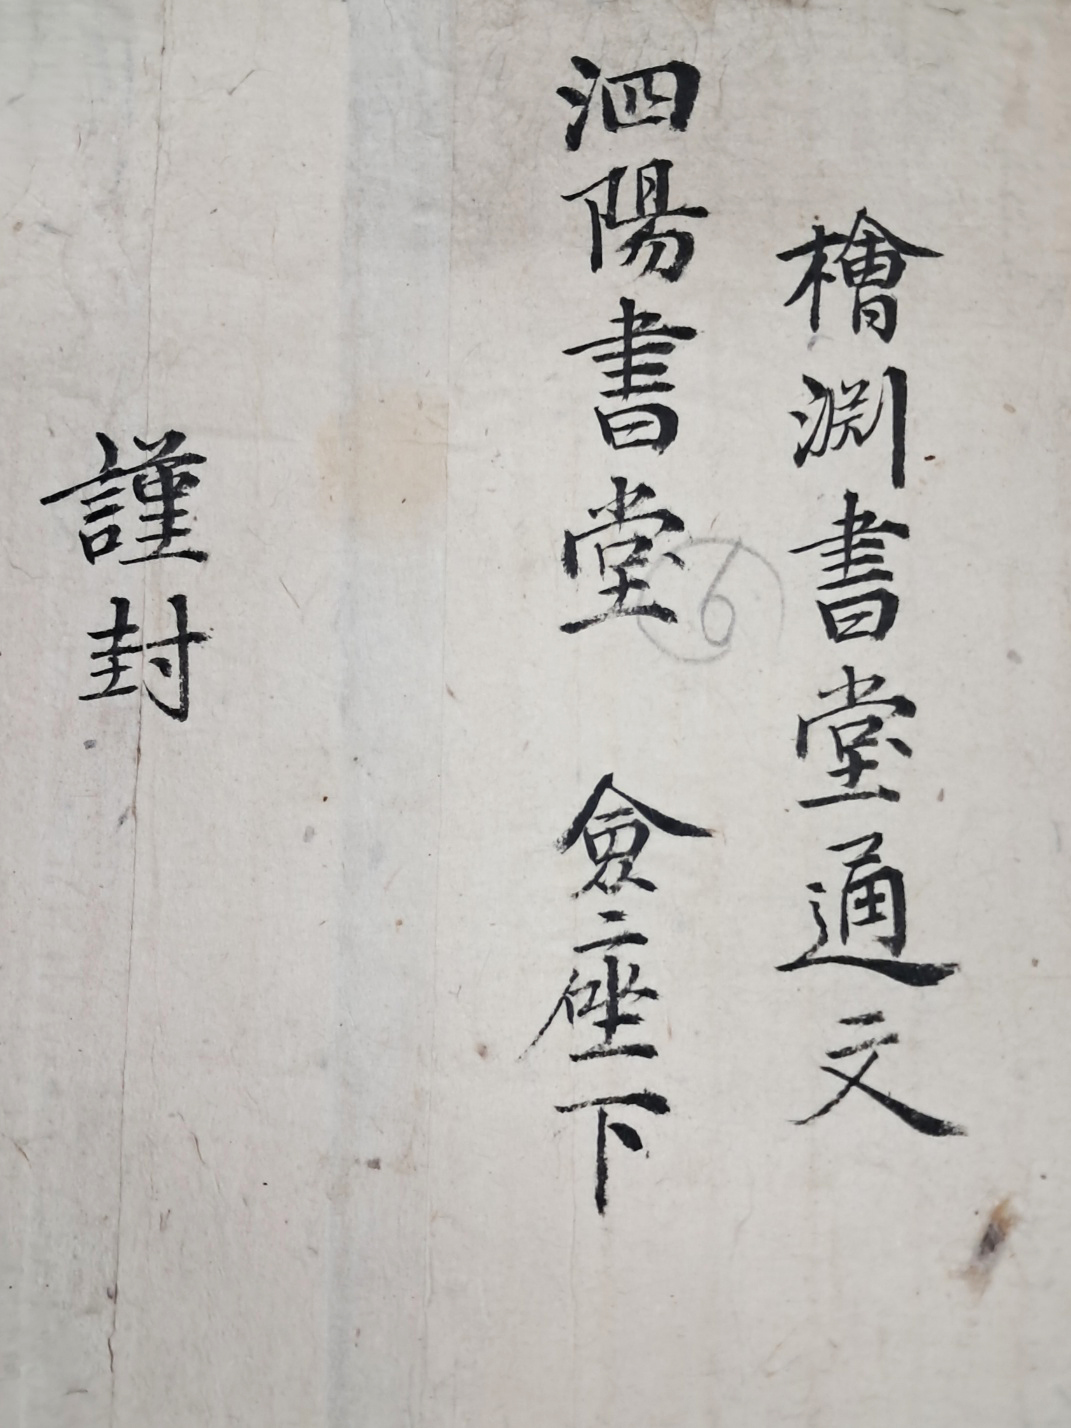 檜淵書堂通文
泗陽書堂 僉座下
謹封
6